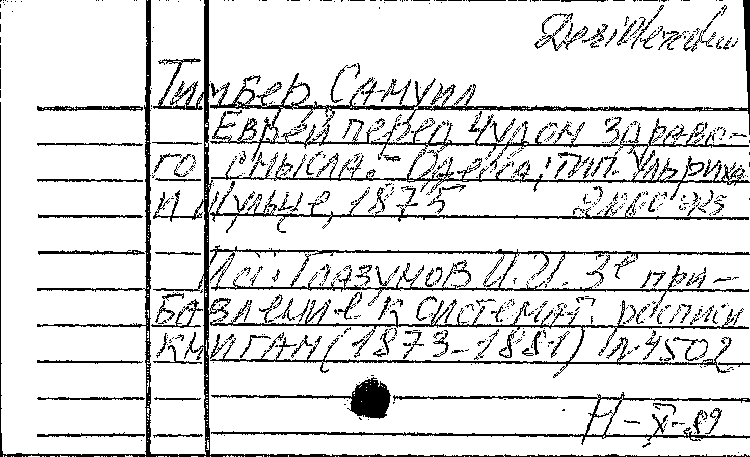 Desiderata
Тимбер, Самуил
Еврей перед чудом здраво-
го смысла. - Одесса; тип. Ульриха
и Шульце, 1875
Ист: Глазунов И.И. 3е при-
бавление к системат. росписи
книгам (1873-1881) № 4502
Н-XI-89